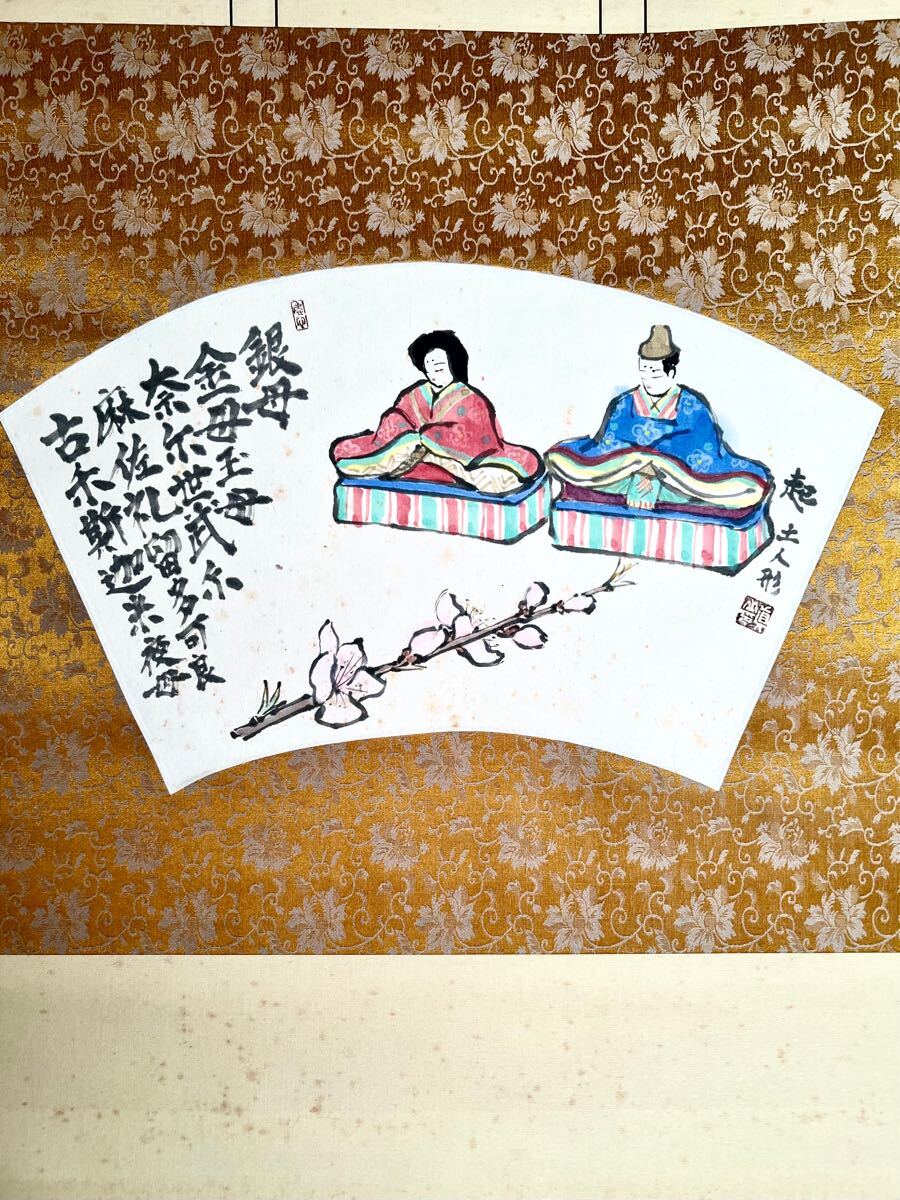 起土人形
銀母
金母玉母
奈尓世武尓
麻佐礼留多可良
古尓斯迦米夜母